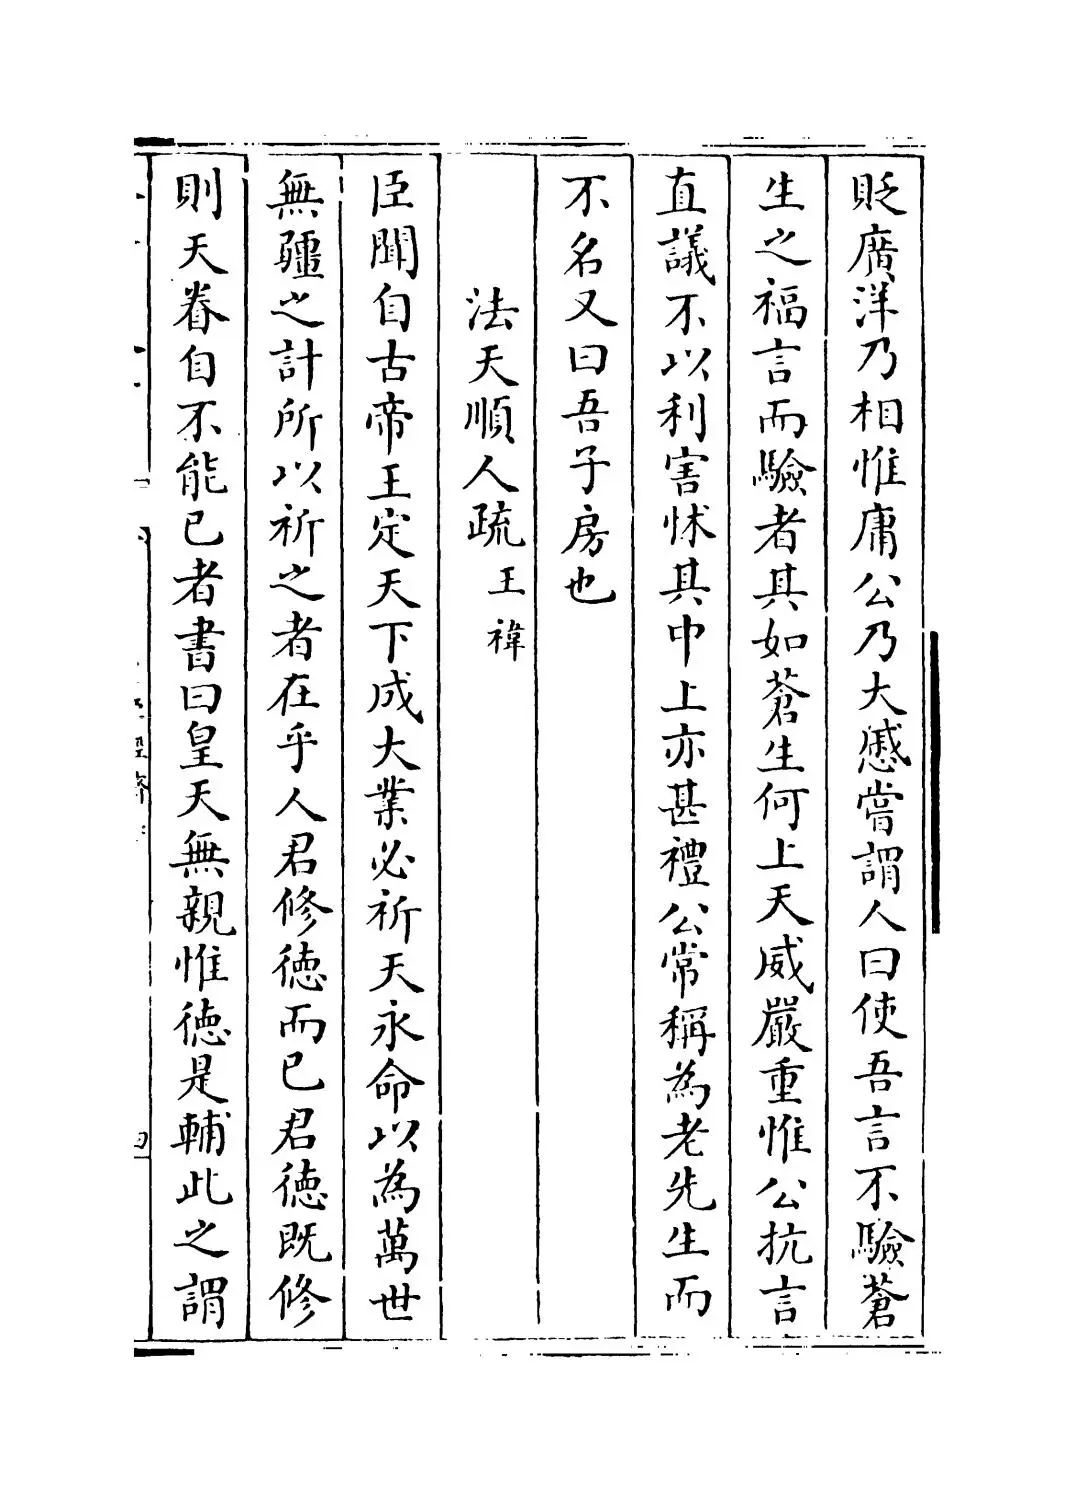 貶廣洋乃相惟庸公乃大慼嘗謂人曰使吾言不驗蒼
生之福言而驗者其如蒼生何上天威嚴重惟公抗言
直議不以利害怵其中上亦甚禮公常稱為老先生而
不名又曰吾子房也
法天順人疏 王禕
臣聞自古帝王定天下成大業必祈天永命以為萬世
無疆之計所以祈之者在乎人君修徳而已君徳既修
則天眷自不能已者書曰皇天無親惟徳是輔此之謂